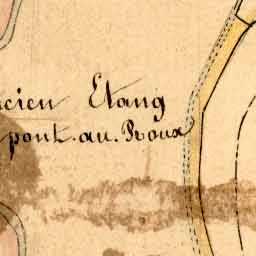 cien Etang
pont. au. Roux